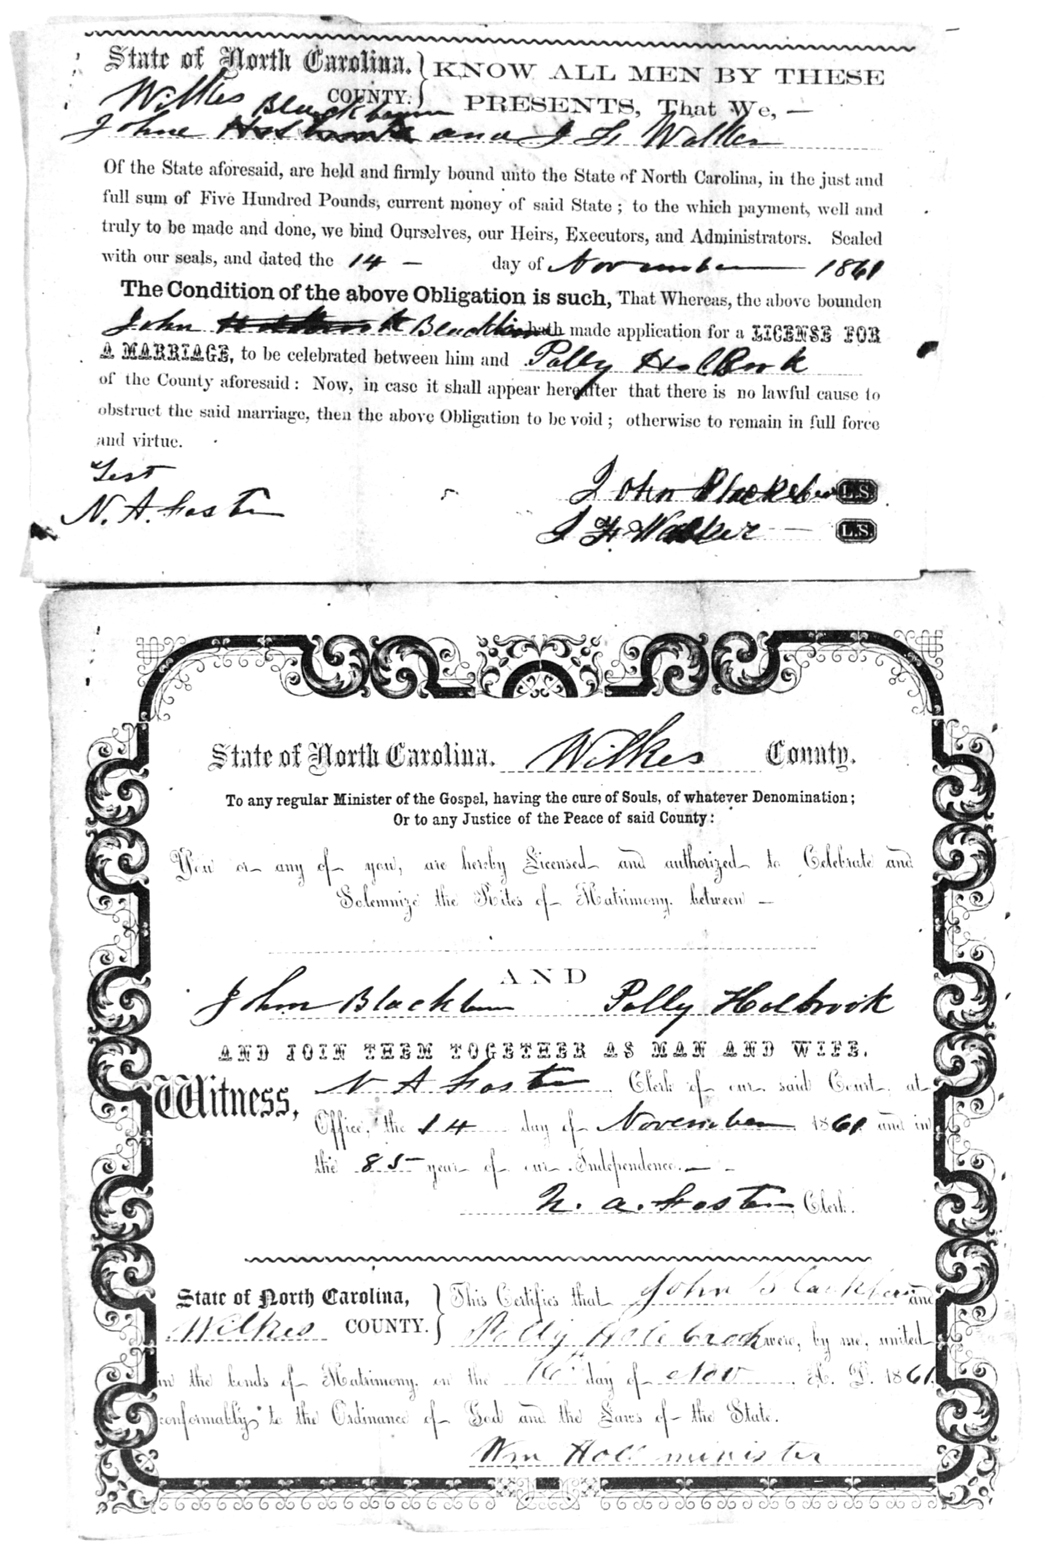 State of North Carolina. } KNOW ALL MEN BY THESE
Wilkes COUNTY. } PRESENTS, That We, —
Blackburn
Johne and J F Walker
Of the State aforesaid, are held and firmly bound unto the State of North Carolina, in the just and
full sum of Five Hundred Pounds, current money of said State ; to the which payment, well and
truly to be made and done, we bind Ourselves, our Heirs, Executors, and Administrators. Sealed
with our seals, and dated the 14 — day of November 1861
The Condition of the above Obligation is such, That Whereas, the above bounden
John Blackburn hath made application for a LICENSE FOR
A MARRIAGE, to be celebrated between him and Polly Holbrook
of the County aforesaid : Now, in case it shall appear hereafter that there is no lawful cause to
obstruct the said marriage, then the above Obligation to be void ; otherwise to remain in full force
and virtue.
Test
N. A. Foster
John Blackburn L.S.
J F Walker L.S.
State of North Carolina. Wilkes County.
To any regular Minister of the Gospel, having the cure of Souls, of whatever Denomination ;
Or to any Justice of the Peace of said County :
You or any of you, are hereby Licensed and authorized to Celebrate and
Solemnize the Rites of Matrimony, between —
AND
John Blackburn Polly Holbrook
AND JOIN THEM TOGETHER AS MAN AND WIFE.
Witness, N A Foster Clerk of our said Court, at
Office, the 14 day of November 1861 and in
the 85 year of our Independence.
N. A. Foster Clerk.
State of North Carolina, } This Certifies that John Blackburn and
Wilkes COUNTY. } Polly Holebrook were, by me, united
in the bonds of Matrimony, on the day of Nov A. D. 1861
conformably to the Ordinance of God and the Laws of the State.
Wm Hall minister